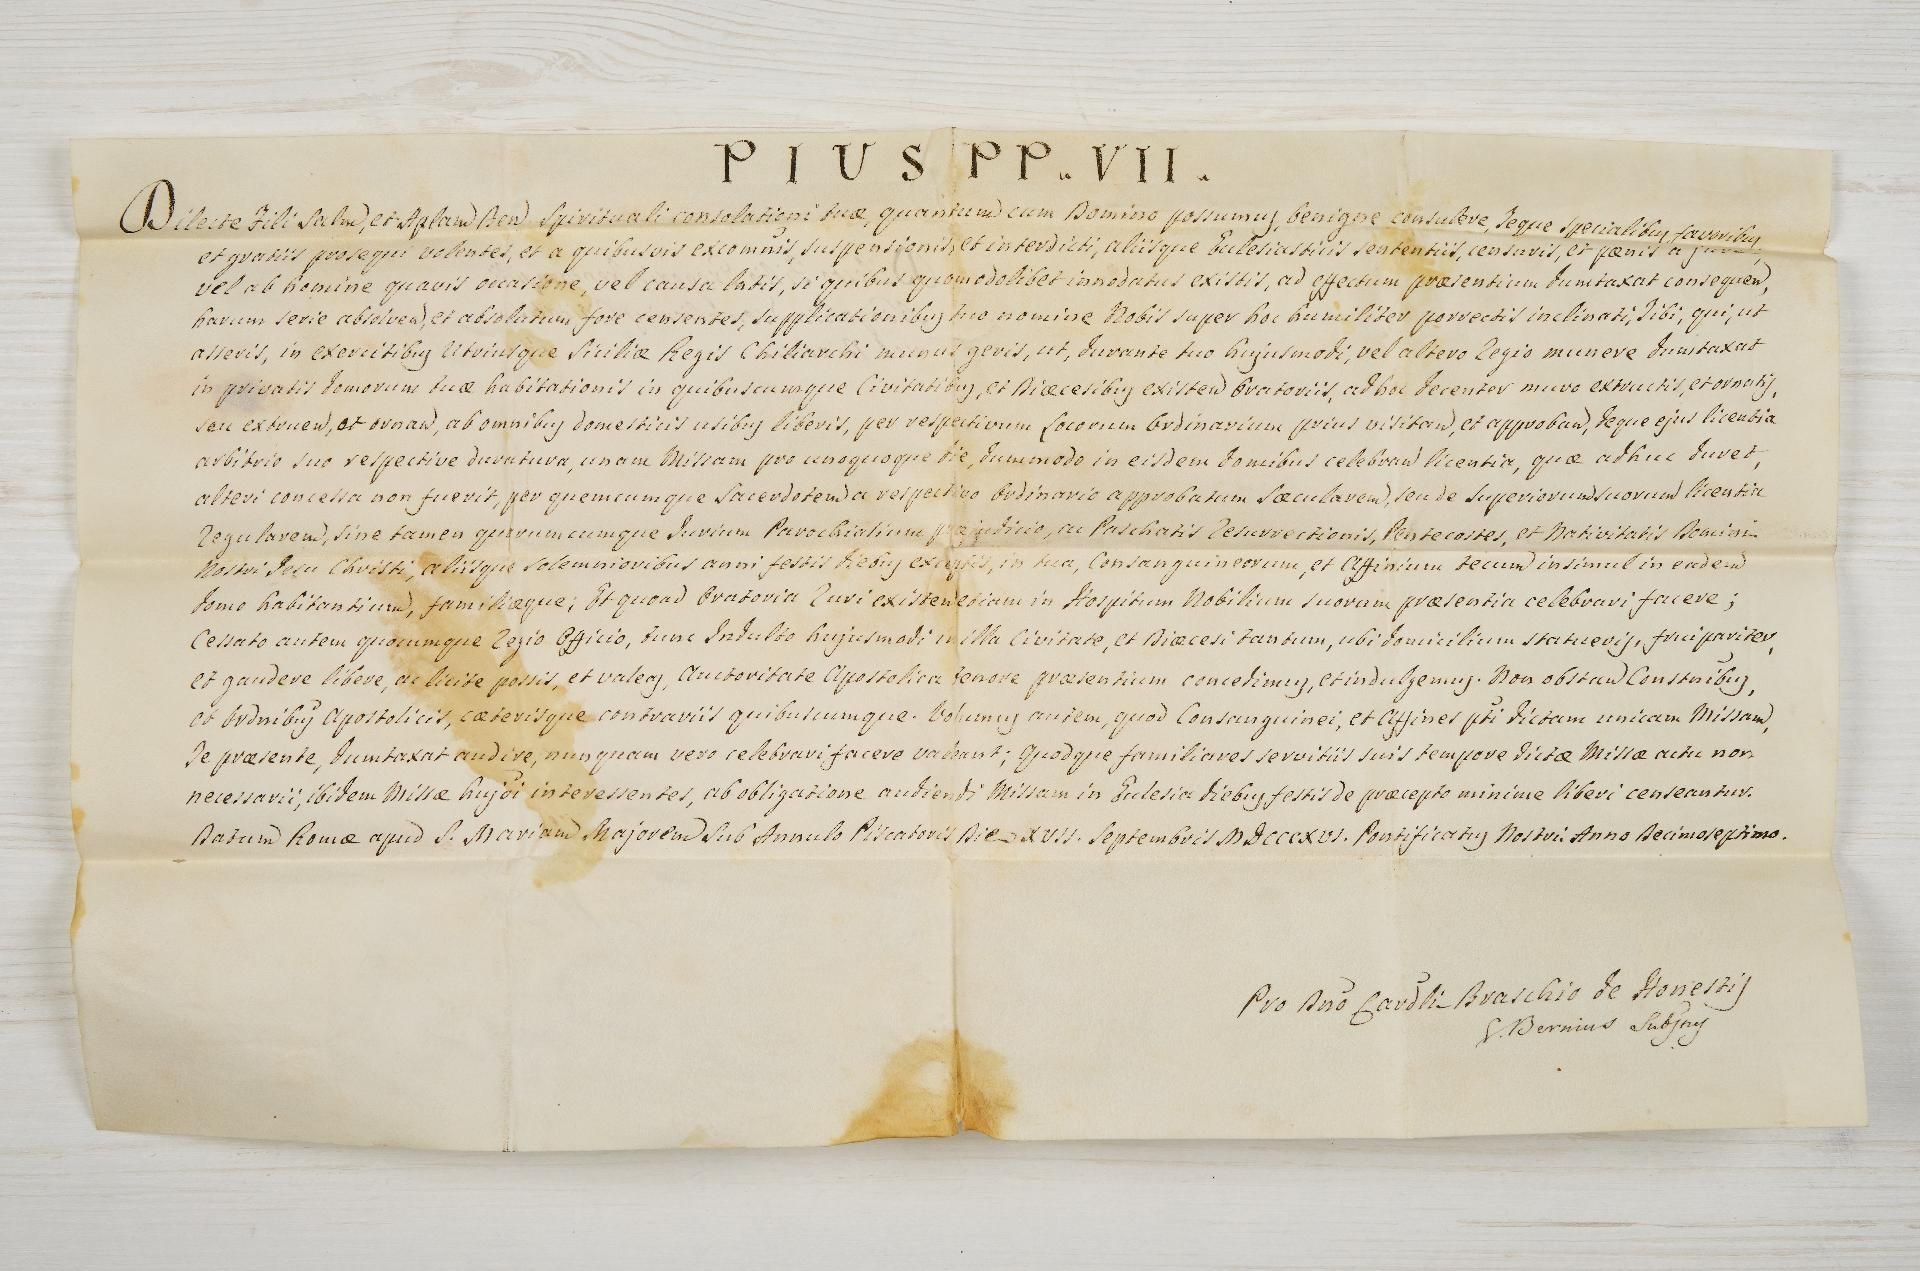 PIUS PP. VII.
Dilecte Fili Salm, et Aplam Ben. Spirituali consolationi tuæ, quantum cum Domino possumus, benigne consulere, Teque specialibus favoribus,
et gratiis prosequi volentes, et a quibusvis excomnis, suspensionis, et interdicti, aliisque Ecclesiasticis sententiis, censuris, et pænis a jure,
vel ab homine quavis occasione, vel causa latis, si quibus quomodolibet innodatus existis, ad effectum præsentium dumtaxat consequen,
harum serie absolven, et absolutum fore censentes, supplicationibus tuo nomine Nobis super hoc humiliter porrectis inclinati, Tibi, qui, ut
asseris, in exercitibus Utriusque Siciliæ Regis Chiliarchi munus geris, ut, durante tuo hujusmodi, vel altero Regio munere dumtaxat
in privatis domorum tuæ habitationis in quibuscumque Civitatibus, et Diæcesibus existen Oratoriis, ad hoc decenter muro extructis, et ornatis,
seu extruen, et ornan, ab omnibus domesticis usibus liberis, per respectivum Locorum Ordinarium prius visitan, et approban, deque ejus licentia
arbitrio suo respective duratura, unam Missam pro unoquoque die, dummodo in eisdem domibus celebran licentia, quæ adhuc duret,
alteri concessa non fuerit, per quemcumque Sacerdotem a respectivo Ordinario approbatum Sæcularem, seu de Superiorum suorum licentia
Regularem, sine tamen quorumcumque Jurium Parochialium præjudicio, ac Paschatis Resurrectionis, Pentecostes, et Nativitatis Domini
Nostri Jesu Christi, aliisque solemnioribus anni festis diebus exceptis, in tua, Consanguineorum, et Affinium tecum insimul in eadem
domo habitantium, familiæque; Et quoad Oratoria Ruri existen etiam in Hospitum Nobilium suorum præsentia celebrari facere;
Cessato autem quocumque Regio Officio, tunc Indulto hujusmodi in illa Civitate, et Diæcesi tantum, ubi domicilium statueris, frui pariter,
et gaudere libere, ac licite possis, et valeas, Auctoritate Apostolica tenore præsentium concedimus, et indulgemus. Non obstan Constnibus,
et Ordnibus Apostolicis, cæterisque contrariis quibuscumque. Volumus autem, quod Consanguinei, et Affines pti dictam unicam Missam,
Te præsente, dumtaxat audire, nunquam vero celebrari facere valeant; Quodque familiares servitiis suis tempore dictæ Missæ actu non
necessarii, ibidem Missæ hujoi interessentes, ab obligatione audiendi Missam in Ecclesia diebus festis de præcepto minime liberi censeantur.
Datum Romæ apud S. Mariam Majorem Sub Annulo Piscatoris Die XVII. Septembris MDCCCXVI. Pontificatus Nostri Anno Decimoseptimo.
Pro Dno Cardli Braschio de Honestis
G. Bernius Subsus